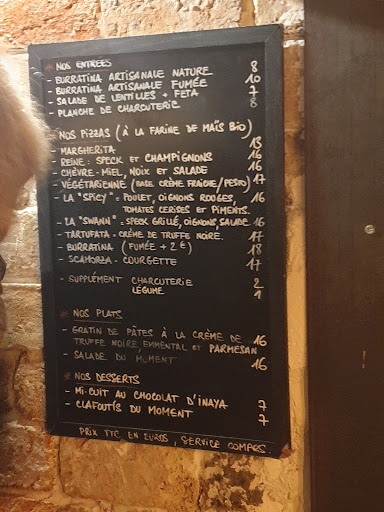 * NOS ENTREES
- BURRATINA ARTISANALE NATURE 8
- BURRATINA ARTISANALE FUMÉE 10
- SALADE DE LENTILLES + FETA 7
- PLANCHE DE CHARCUTERIE 8
* NOS PIZZAS (À LA FARINE DE MAÏS BIO)
- MARGHERITA 13
- REINE : SPECK ET CHAMPIGNONS 16
- CHÈVRE - MIEL, NOIX ET SALADE 16
- VÉGÉTARIENNE (BASE CRÈME FRAÎCHE/PESTO) 17
- LA "SPICY" = POULET, OIGNONS ROUGES, 16
TOMATES CERISES ET PIMENTS.
- LA "SWANN" = SPECK GRILLÉ, OIGNONS, SALADE 16
- TARTUFATA = CRÈME DE TRUFFE NOIRE. 17
- BURRATINA (FUMÉE + 2€) 18
- SCAMORZA - COURGETTE 17
- SUPPLÉMENT CHARCUTERIE 2
LÉGUME 1
* NOS PLATS
- GRATIN DE PÂTES À LA CRÈME DE 16
TRUFFE NOIRE, EMMENTAL ET PARMESAN
- SALADE DU MOMENT 16
* NOS DESSERTS
- MI-CUIT AU CHOCOLAT D'INAYA 7
- CLAFOUTIS DU MOMENT 7
PRIX TTC EN EUROS, SERVICE COMPRIS.